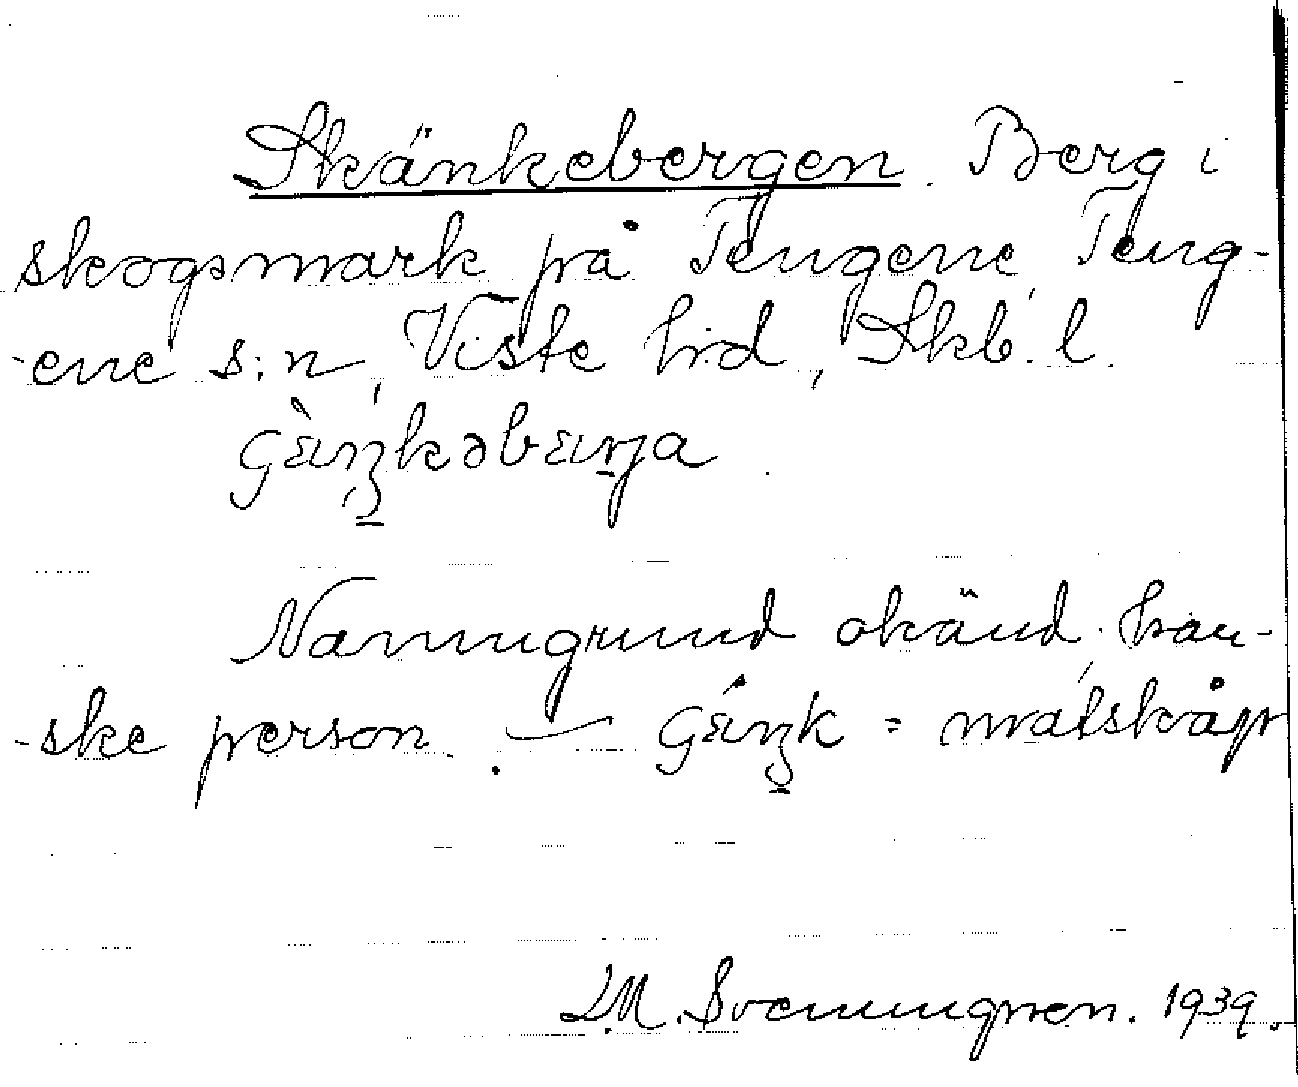 Skänkebergen. Berg i
skogsmark på Tengene, Teng-
-ene s:n, Viste h:d, Skb. l.
Namngrund okänd, kan-
-ske person. — = matskåp
L.M. Svenungsson. 1939.